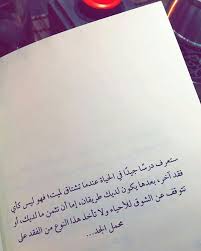 ستعرف درسًا جيدًا في الحياة عندما تشتاق لميت؛ فهو ليس كأي
فقد آخر، بعدها يكون لديك طريقان، إما أن تثمن ما لديك، أو
تتوقف عن الشوق للأحياء ولا تأخذ هذا النوع من الفقد على
محمل الجد...